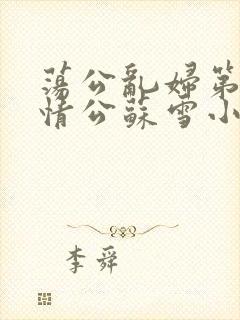 荡公乱婦第
情公蘇雪小
李舜